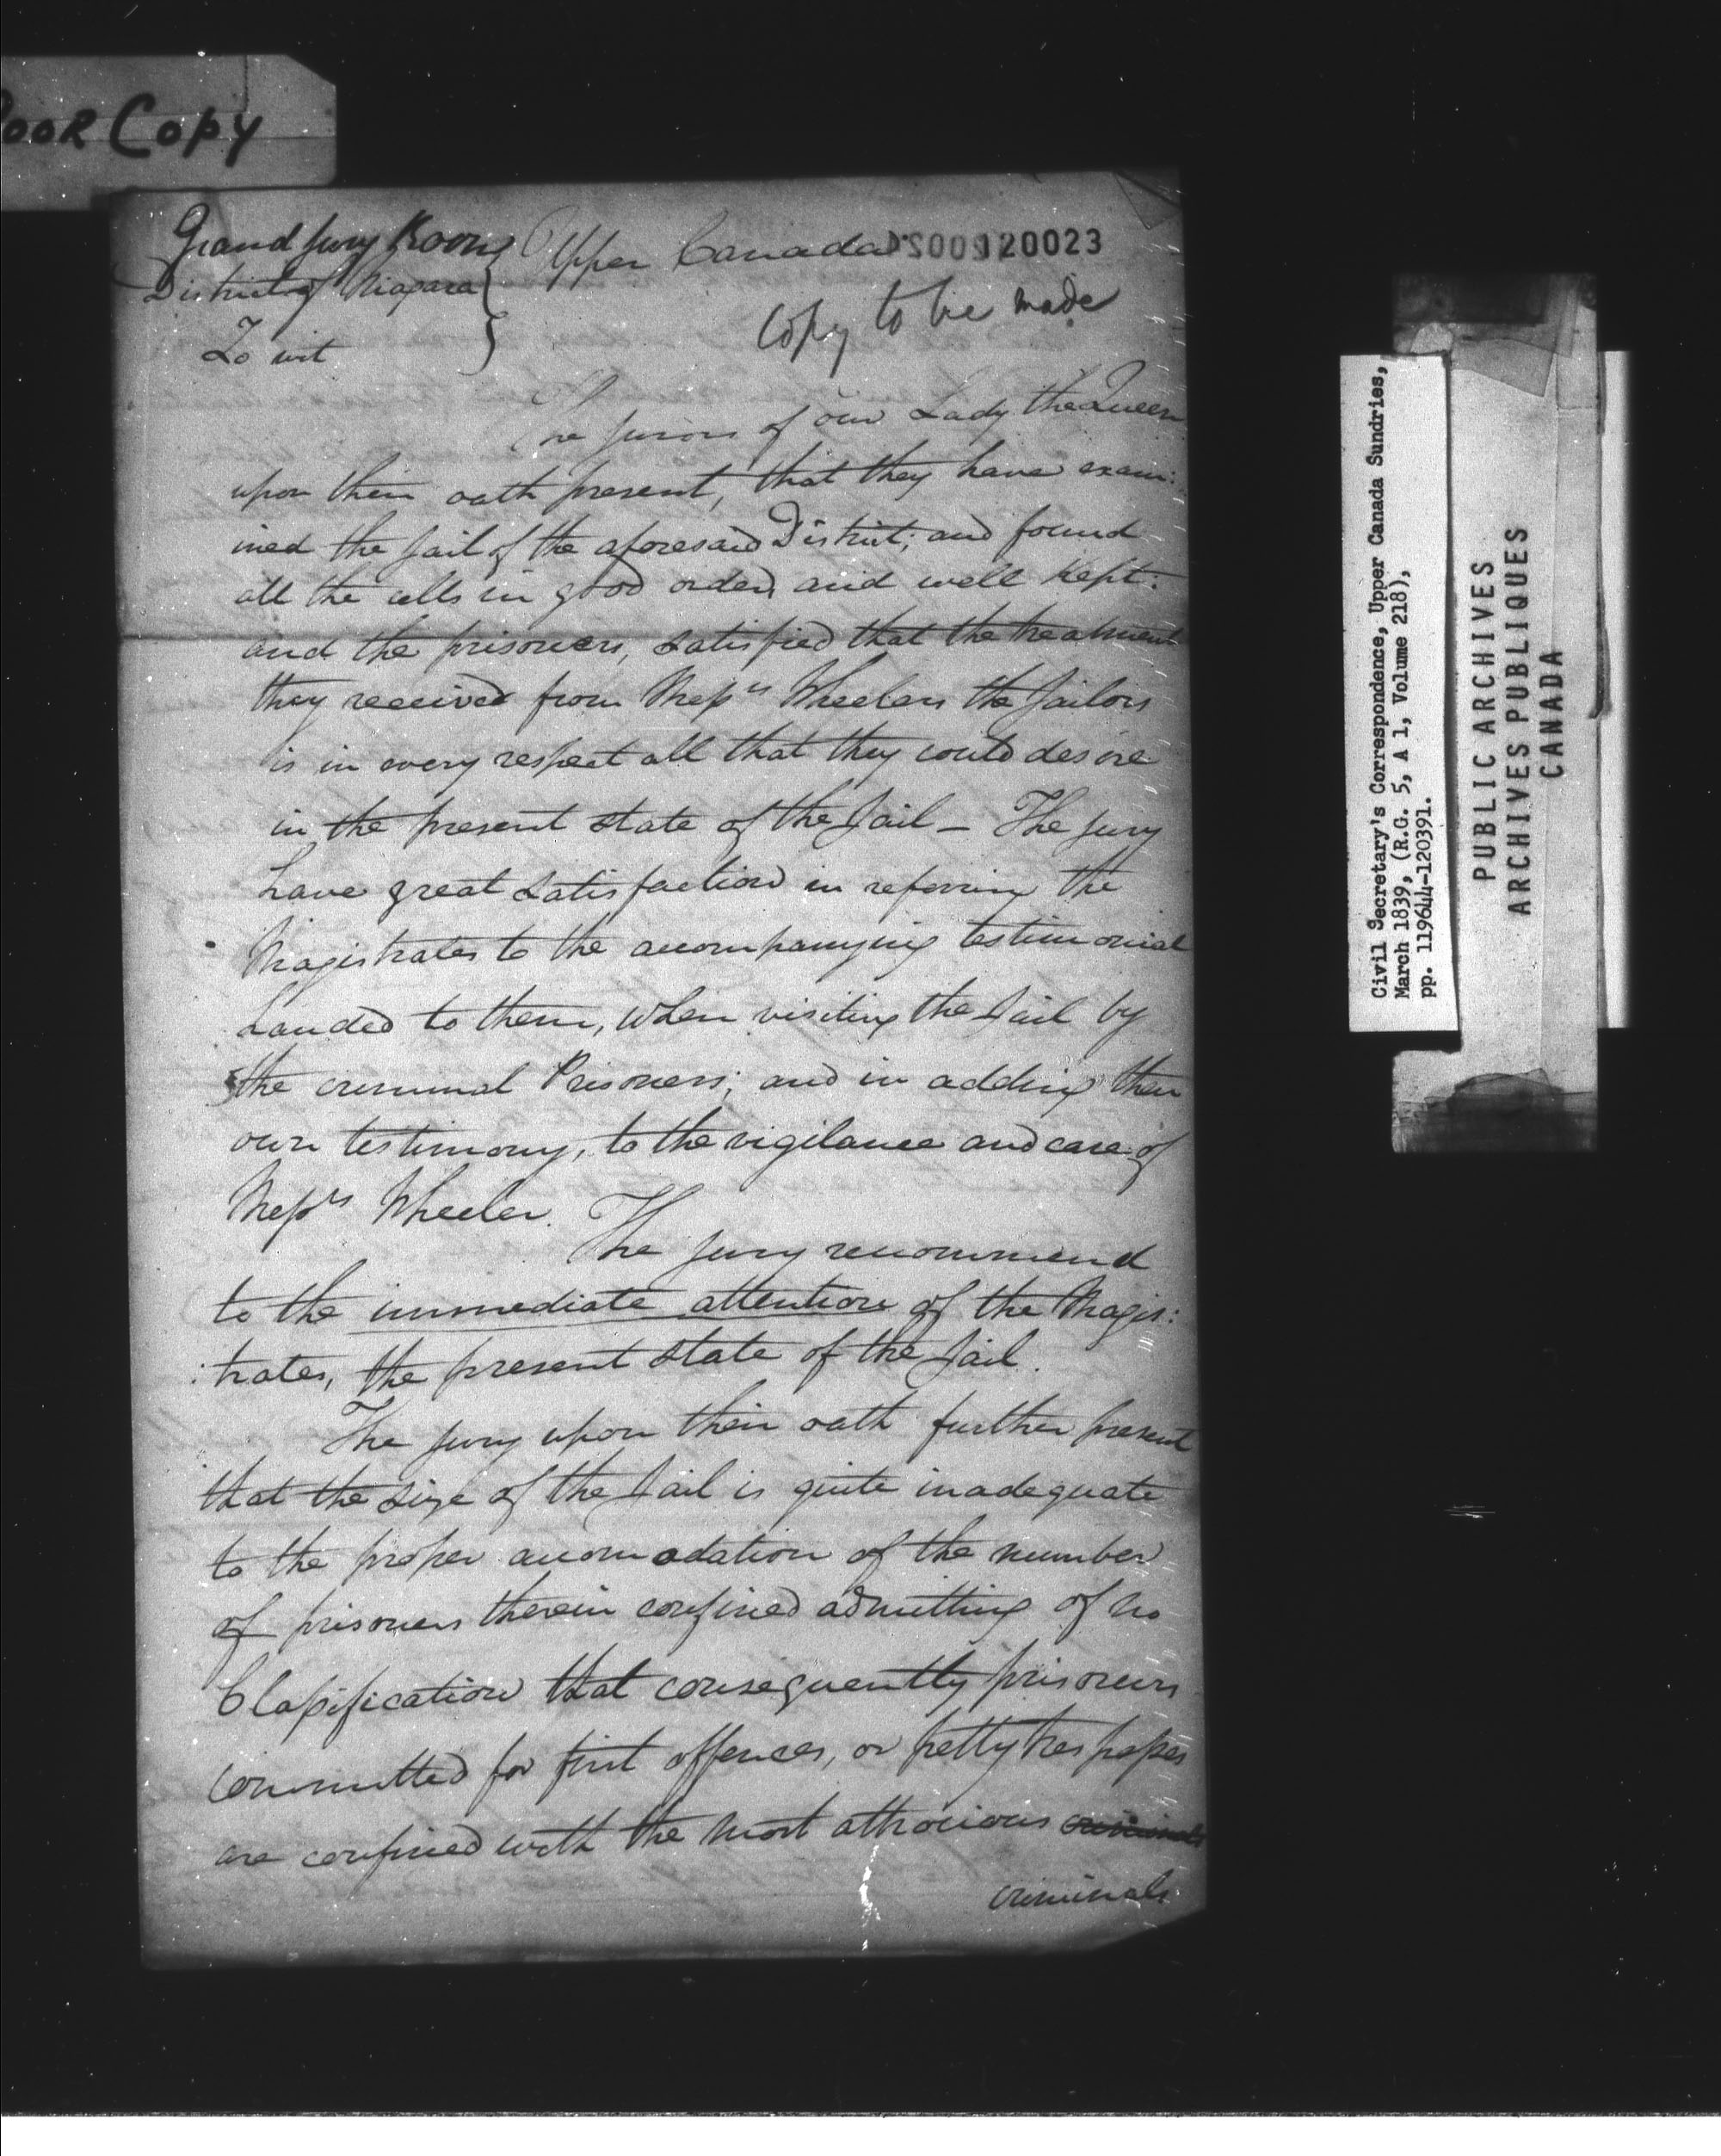 POOR COPY
Grand Jury Room } Upper Canada 120023
District of Niagara
To wit
Copy to be made
The jurors of our Lady the Queen
upon their oath present, that they have exam:
ined the Jail of the aforesaid District; and found
all the cells in good order, and well kept:
and the prisoners, satisfied that the treatment
they received from Messrs Wheelers the Jailors
is in every respect all that they could desire
in the present state of the Jail – The jury
have great satisfaction in referring the
Magistrates to the accompanying testimonial
handed to them, when visiting the Jail by
the criminal Prisoners; and in adding their
own testimony, to the vigilance and care of
Messrs Wheeler. The jury recommend
to the immediate attention of the Magis:
:trates, the present state of the Jail.
The jury upon their oath further present
that the size of the Jail is quite inadequate
to the proper accomodation of the number
of prisoners therein confined admitting of no
Classification that consequently prisoners
committed for first offences, or petty trespasses
are confined with the most attrocious criminals
criminals
Civil Secretary's Correspondence, Upper Canada Sundries,
March 1839, (R.G. 5, A 1, Volume 218),
pp. 119644-120391.
PUBLIC ARCHIVES
ARCHIVES PUBLIQUES
CANADA